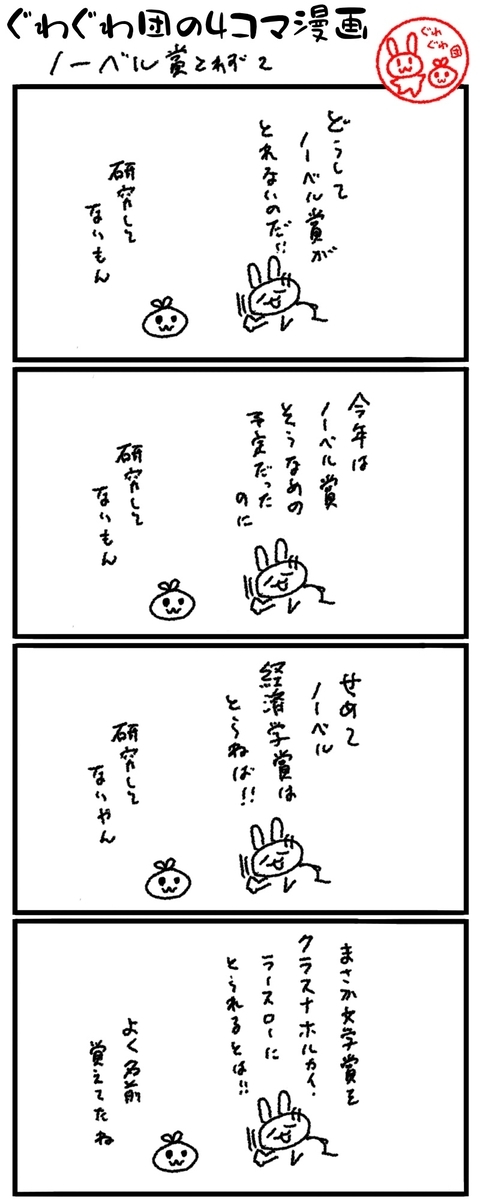 ぐわぐわ団の4コマ漫画
ノーベル賞とれず2
ぐわ
ぐわ
団
どうして
ノーベル賞が
とれないのだ!!
研究して
ないもん
今年は
ノーベル賞
そうなめの
予定だった
のに
研究して
ないもん
せめて
ノーベル
経済学賞は
とらねば!!
研究して
ないやん
まさか文学賞を
クラスナホルカイ・
ラースローに
とられるとは!!
よく名前
覚えてたね